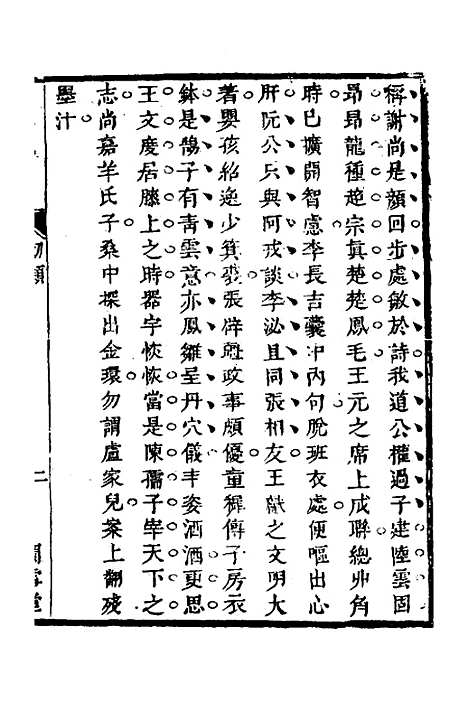 稱謝尚是顏回步處敏於詩我道公權過子建陸雲固
昂昂龍種趙宗真楚楚鳳毛王元之席上成聯總丱角
時已擴開智慮李長吉囊中內句脫班衣處便嘔出心
肝阮公只與阿戎談李泌且同張相友王勮之文明大
著嬰孩紹逸少箕裘張辟彊政事頗優童穉傳子房衣
鉢是鵠子有靑雲意亦鳳雛呈丹穴儀丰姿酒酒更思
王文度居膝上之時器宇恢恢當是陳孺子宰天下之
志尚嘉羊氏子桑中探出金環勿謂盧家兒案上翻殘
墨汁
二